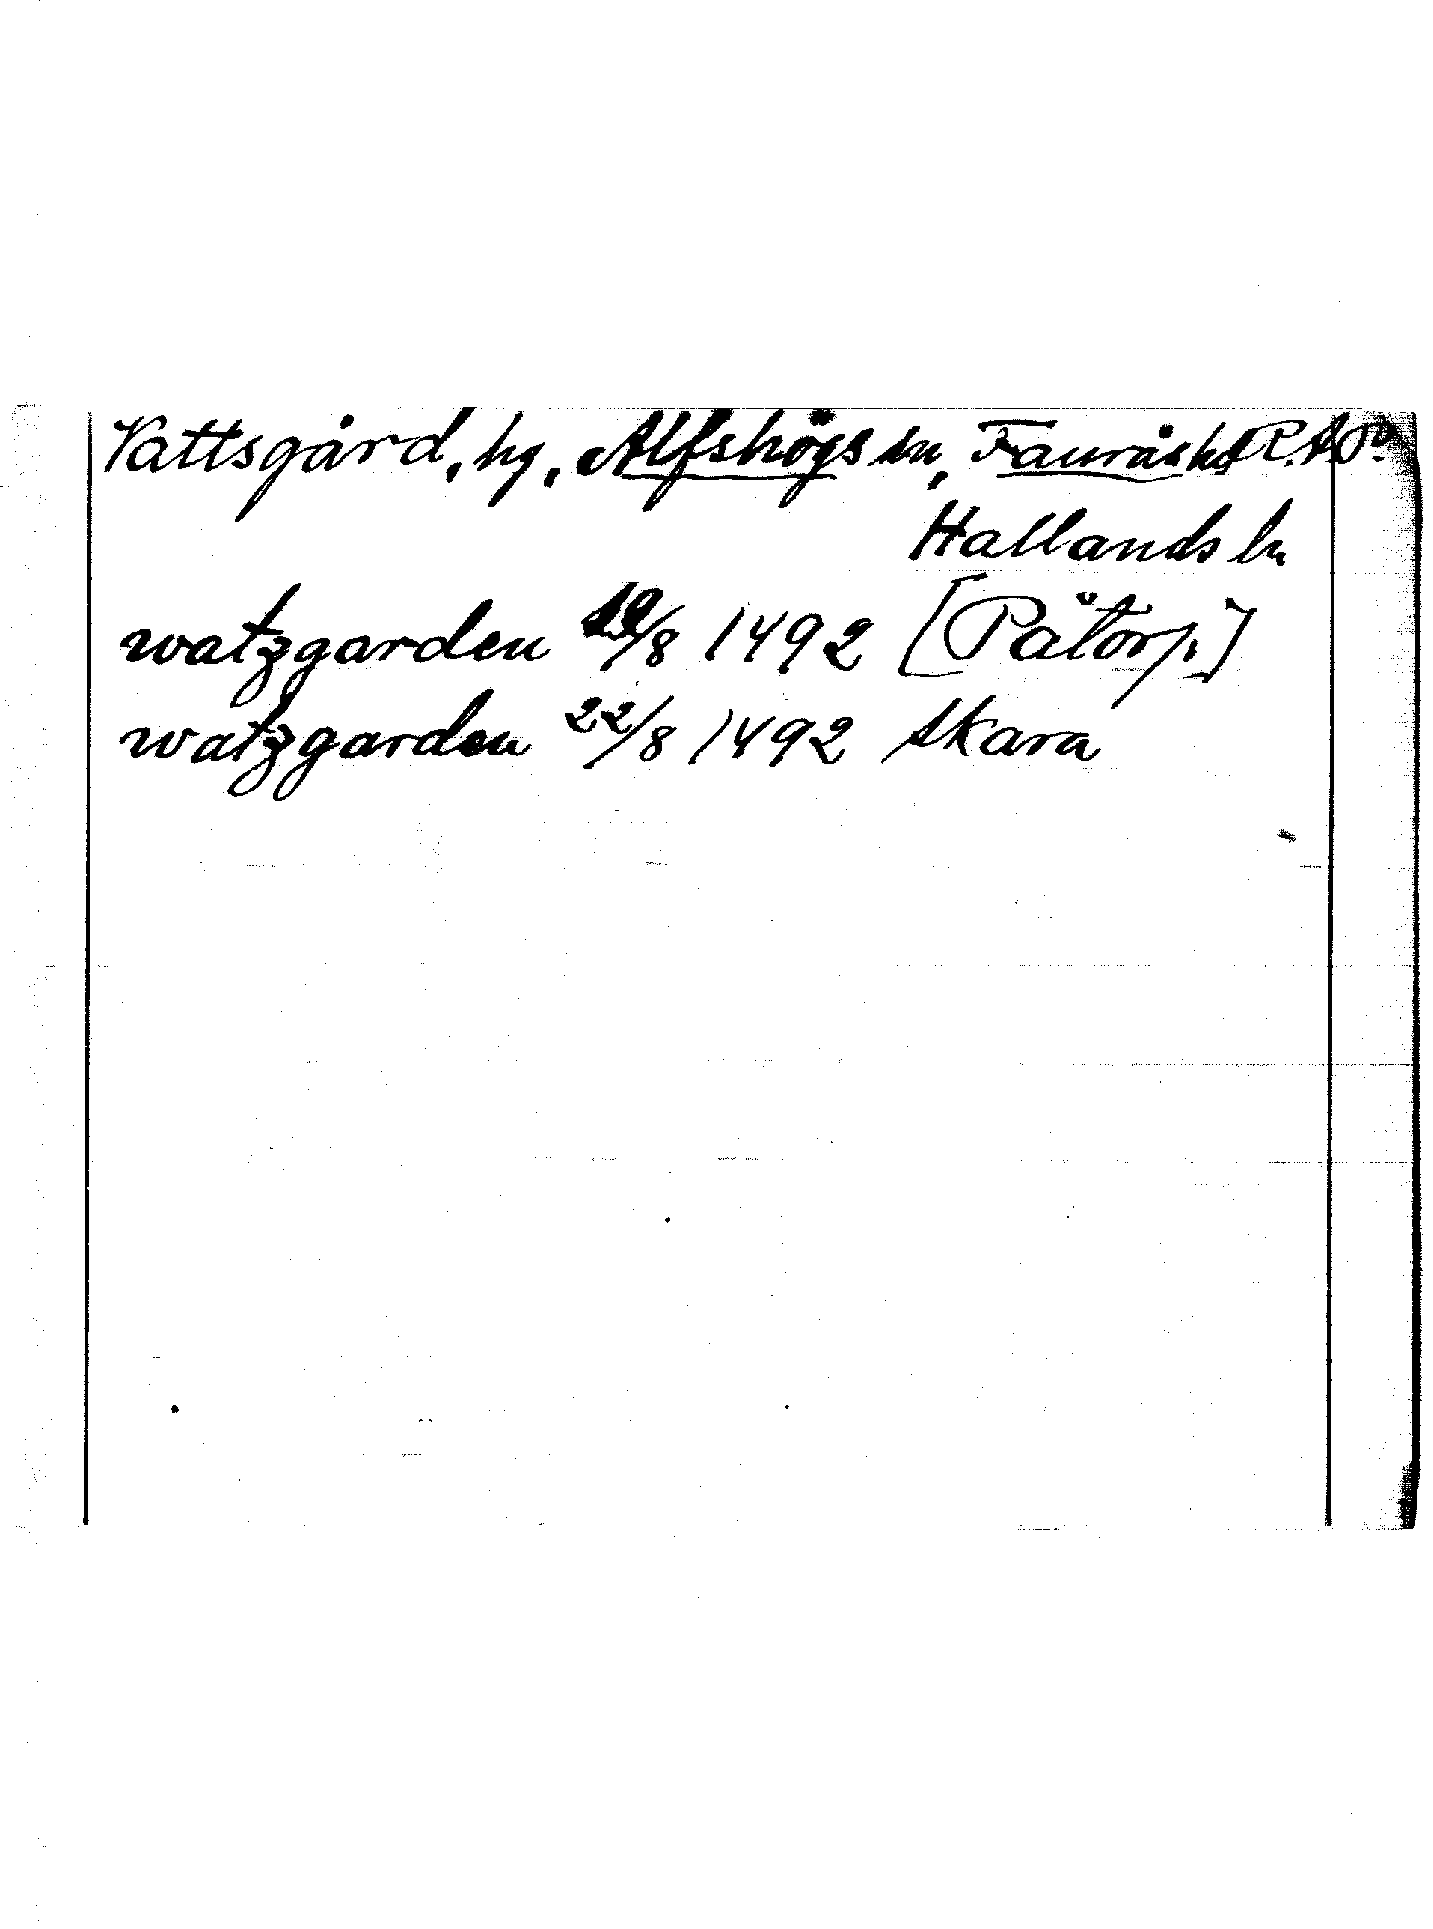 Vattsgård, hg, Alfshögs sn, Faurås hd R.A.P.
Hallands ln
watzgarden 19/8 1492 [Pätorp]
watzgarden 22/8 1492 Skara